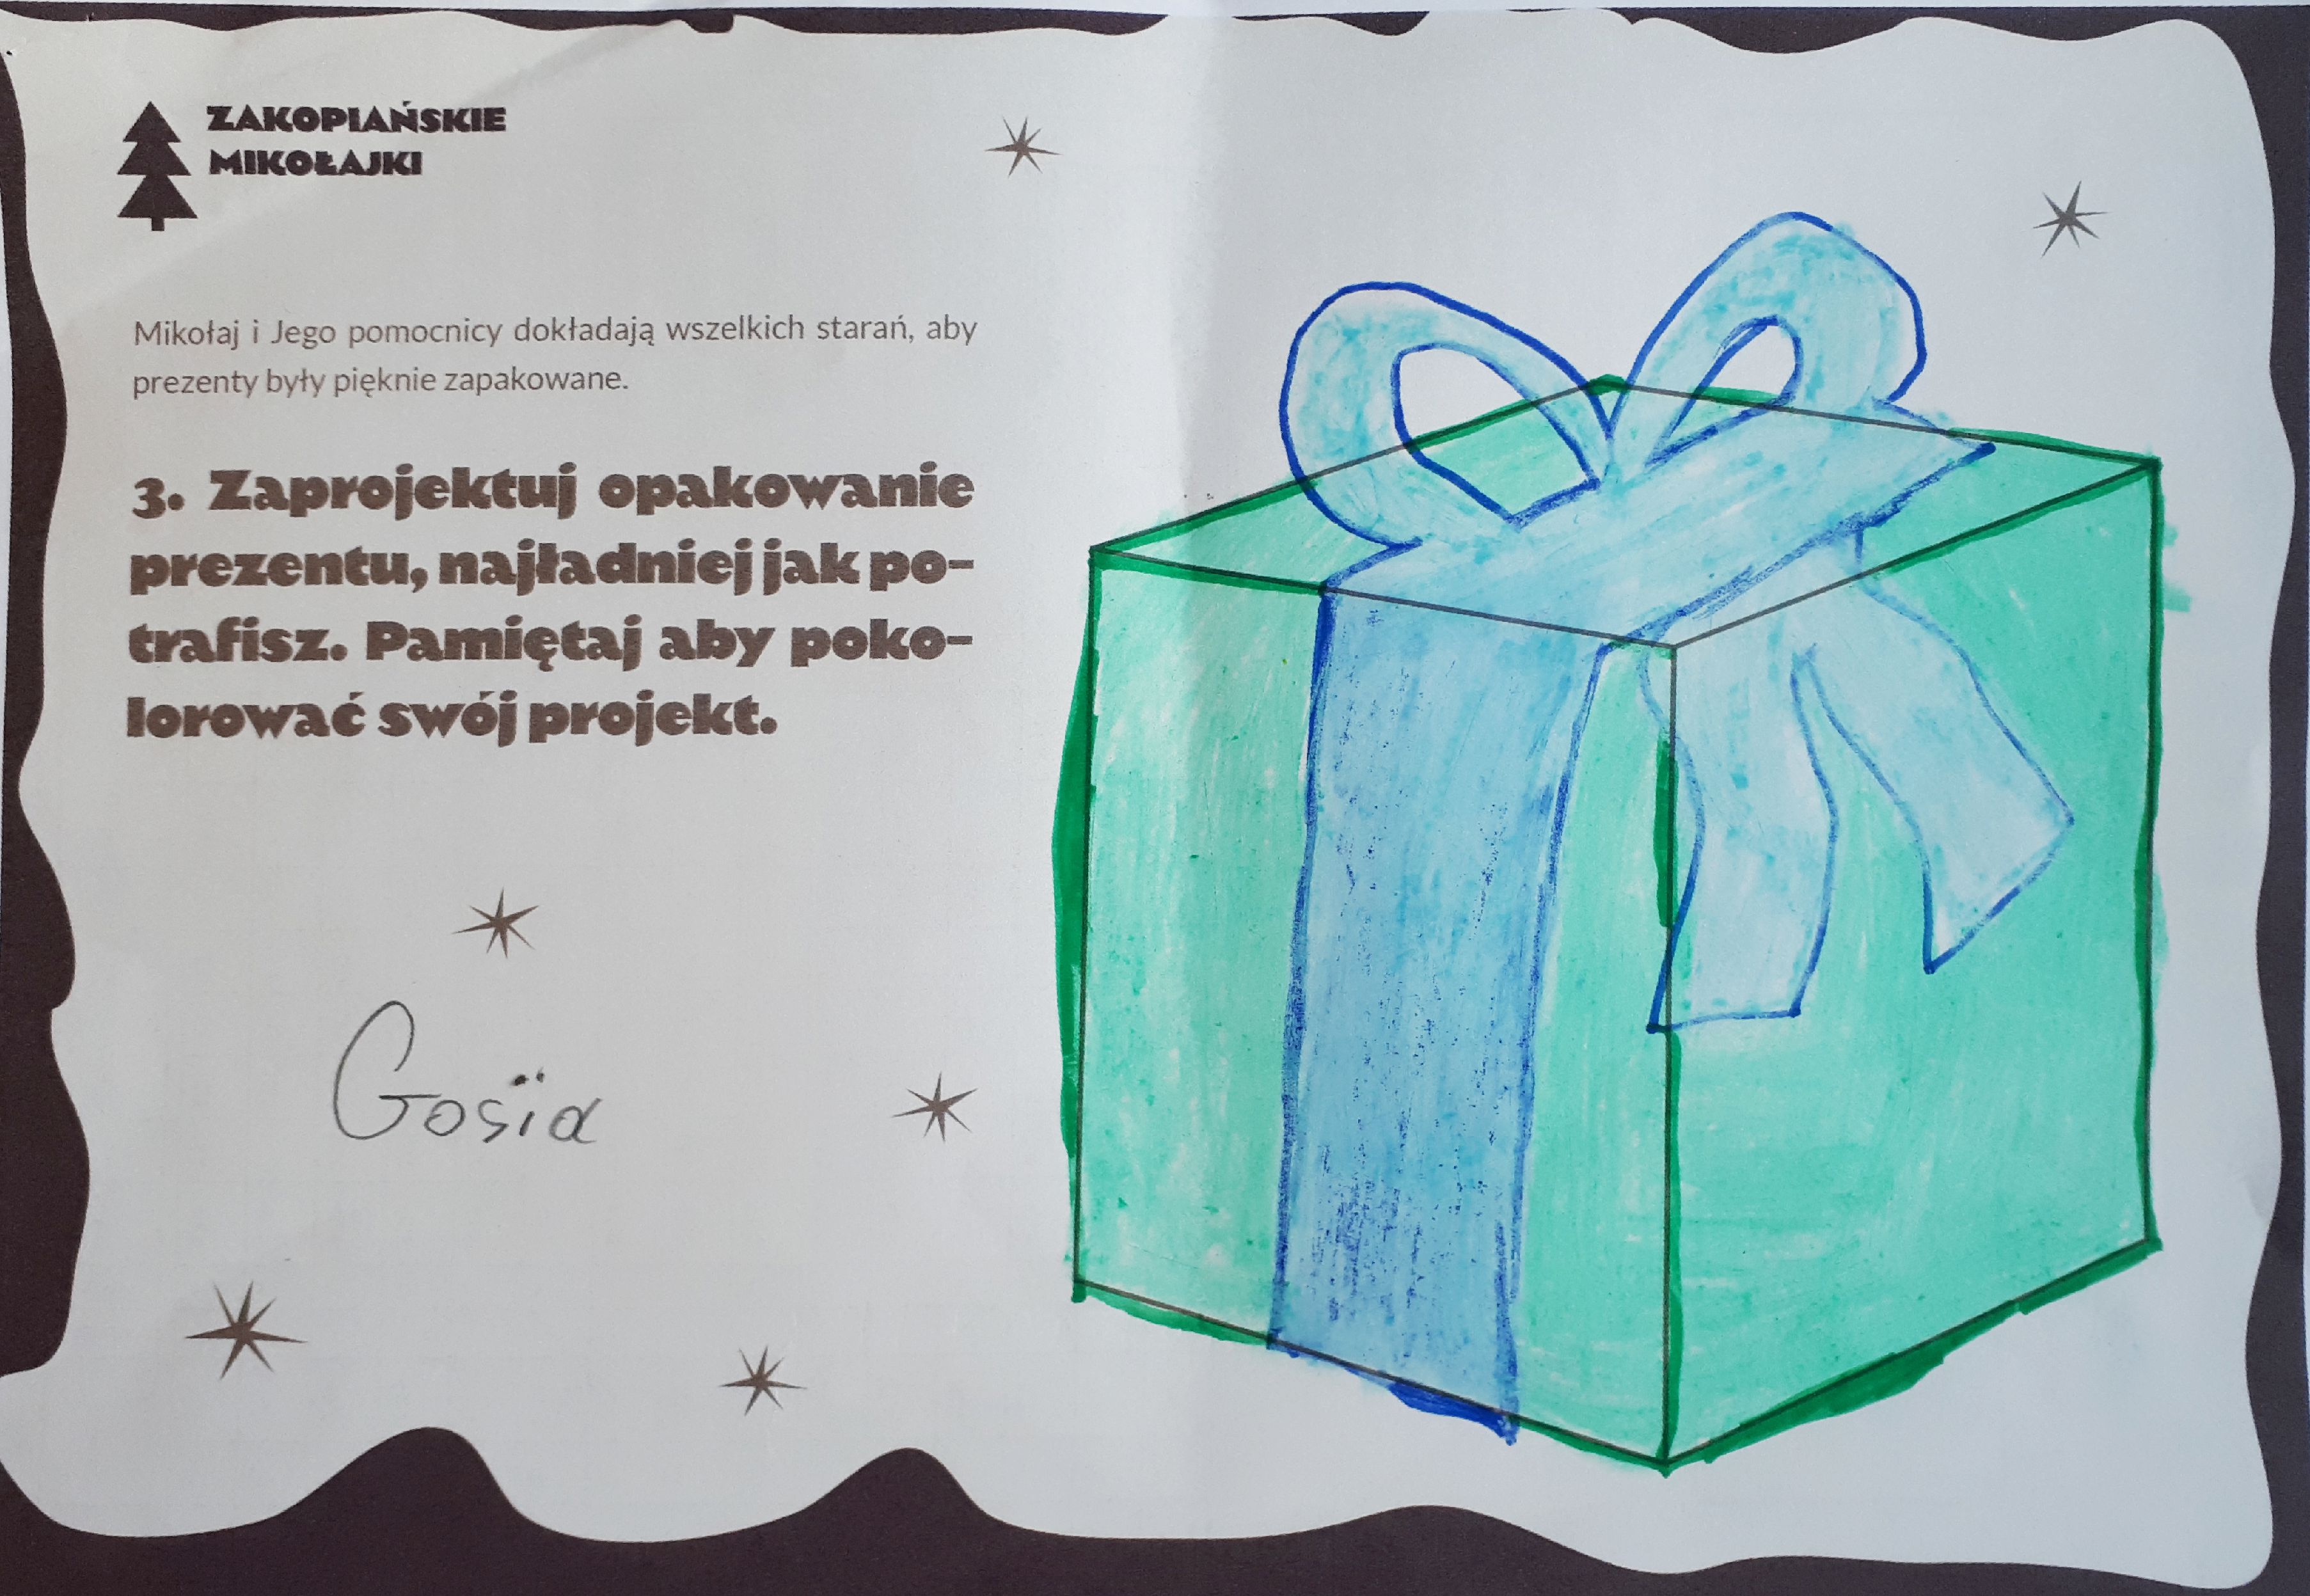 ZAKOPIAŃSKIE
MIKOŁAJKI
Mikołaj i Jego pomocnicy dokładają wszelkich starań, aby
prezenty były pięknie zapakowane.
3. Zaprojektuj opakowanie
prezentu, najładniej jak po-
trafisz. Pamiętaj aby poko-
lorować swój projekt.
Gosia